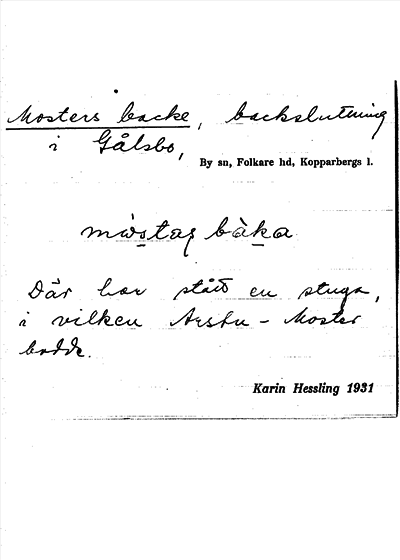 Mosters backe, backsluttning
i Gålsbo,
By sn, Folkare hd, Kopparbergs l.
mòstaṣ bàka
Där har stått en stuga,
i vilken Arstu-Moster
bodde.
Karin Hessling 1931